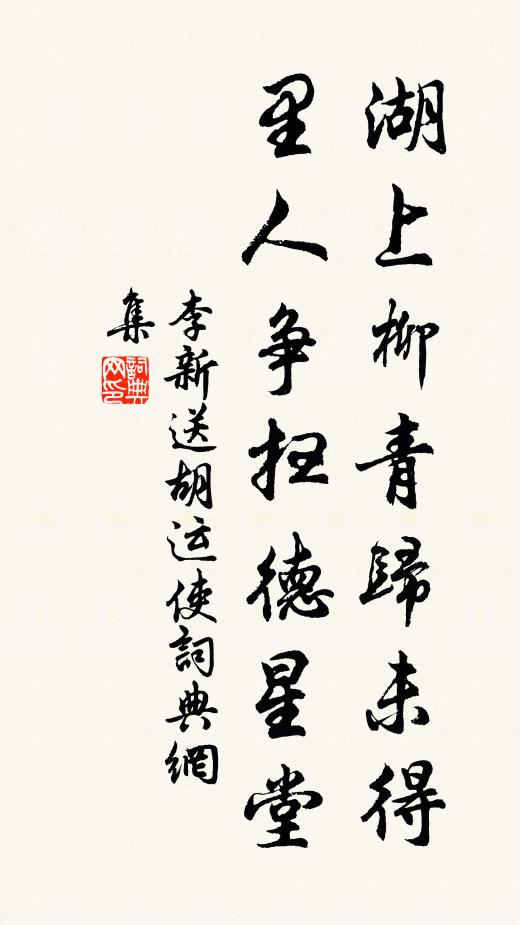 湖上柳青歸未得
里人争扫德星堂
李新送胡运使詞典網
集
詞典网印